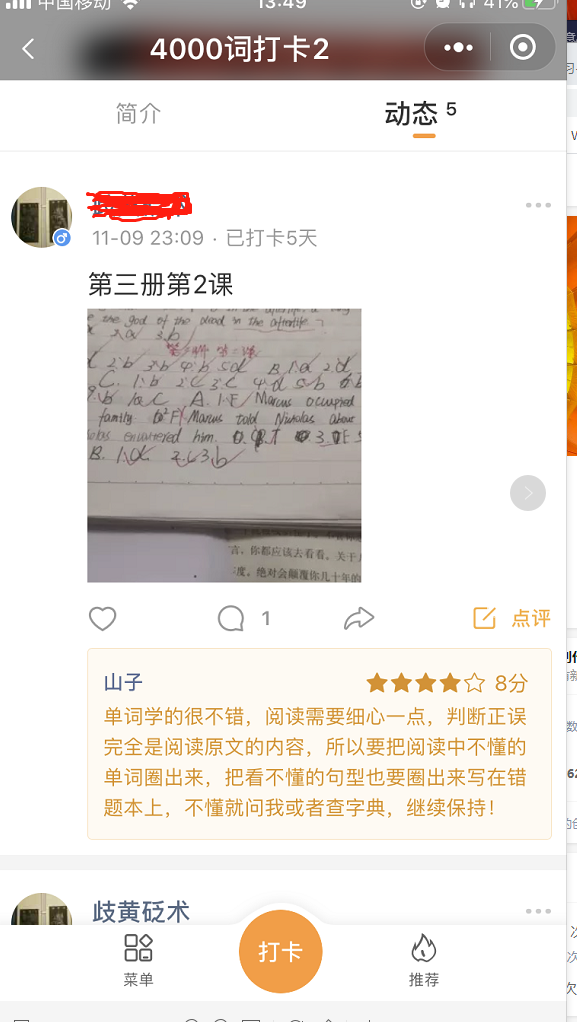 中国移动
13:49
41%
4000词打卡2
简介
动态 5
11-09 23:09 · 已打卡5天
第三册第2课
the god of the dead in the afterlife
2.b 3.b 4.b 5.d B. 1.a 2.d
C. 1.b 2.c 3.c 4.d 5.b
A. 1.F Marcus occupied
family 2.F Marcus told Nicholas about
encountered him.
B. 1.a 2.c 3.b
言，你都应该去看看。关于
度，绝对会颠覆你几十年的
1
点评
山子
8分
单词学的很不错，阅读需要细心一点，判断正误
完全是阅读原文的内容，所以要把阅读中不懂的
单词圈出来，把看不懂的句型也要圈出来写在错
题本上，不懂就问我或者查字典，继续保持！
歧黄砭术
菜单
打卡
推荐